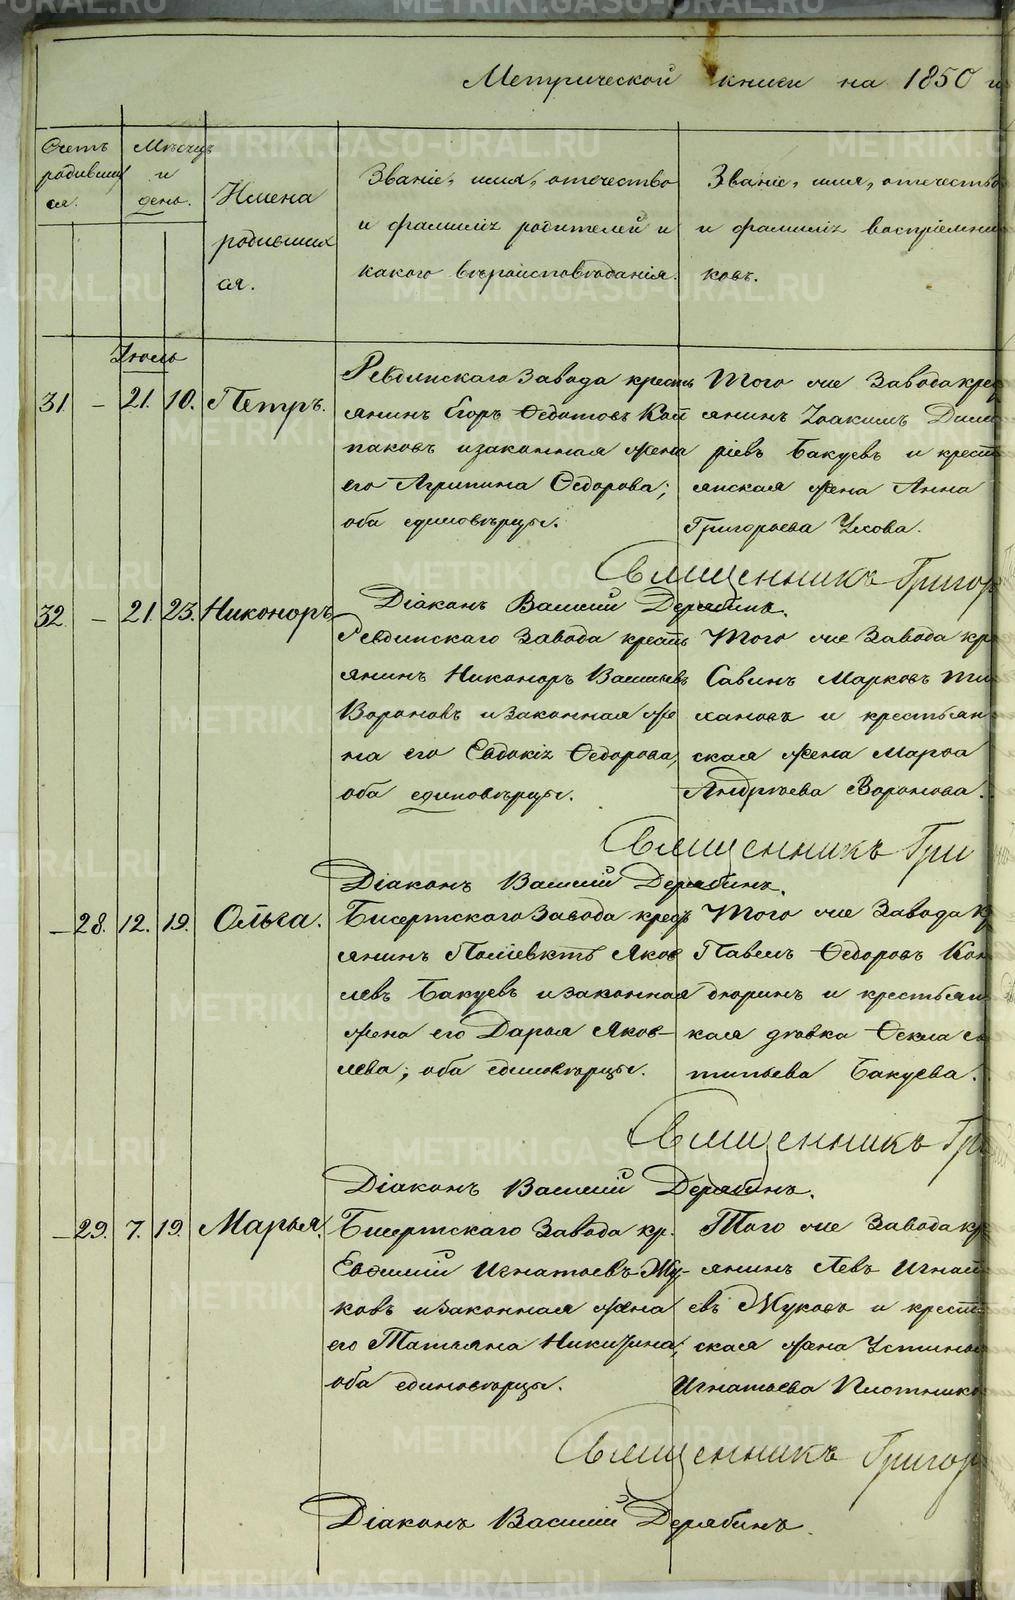 Метрической книги на 1850 и
Счетъ родившихся.
Мѣсяцъ и день.
Имена родившихся.
Званіе, имя, отечество и фамилія родителей и какого вѣроисповѣданія.
Званіе, имя, отечество и фамилія воспріемниковъ.
Іюль
31. – 21. 10. Петръ.
Ревдинскаго Завода кресть
янинъ Егоръ Ѳедотовъ Кол
паковъ и законная жена
его Агрипина Ѳедорова;
оба единовѣрцы.
Того же Завода крес
янинъ Іоакимъ Дими
ріевъ Бакуевъ и крест
янская жена Анна
Григорьева Усова.
Священникъ Григор
Діаконъ Василій Дерябинъ.
32 – 21. 23. Никоноръ
Ревдинскаго Завода кресть
янинъ Никоноръ Васильевъ
Вороновъ и законная же
на его Евдокія Ѳедорова,
оба единовѣрцы.
Того же Завода кр
Савинъ Марковъ
лановъ и крестьян
ская жена Марѳа
Андрѣева Воронова.
Священникъ Гри
Діаконъ Василій Дерябинъ.
– 28. 12. 19. Ольга.
Бисертскаго Завода кресть
янинъ Поліевктъ Яков
левъ Бакуевъ и законная
жена его Дарья Яков-
лева; оба единовѣрцы.
Того же Завода к
Павелъ Ѳедоровъ Кон
дюринъ и крестьян
кая дѣвка Ѳекла
типьева Бакуева.
Священникъ Гри
Діаконъ Василій Дерябинъ.
– 29. 7. 19. Марья.
Бисертскаго Завода кр.
Евѳимій Игнатьевъ Жу-
ковъ и законная жена
его Татьяна Никитина;
оба единовѣрцы.
Того же Завода кр
янинъ Левъ Игнать
евъ Жуковъ и крест
ская жена Устинья
Игнатьева Плотнико
Священникъ Григор
Діаконъ Василій Дерябинъ.
METRIKI.GASO-URAL.RU